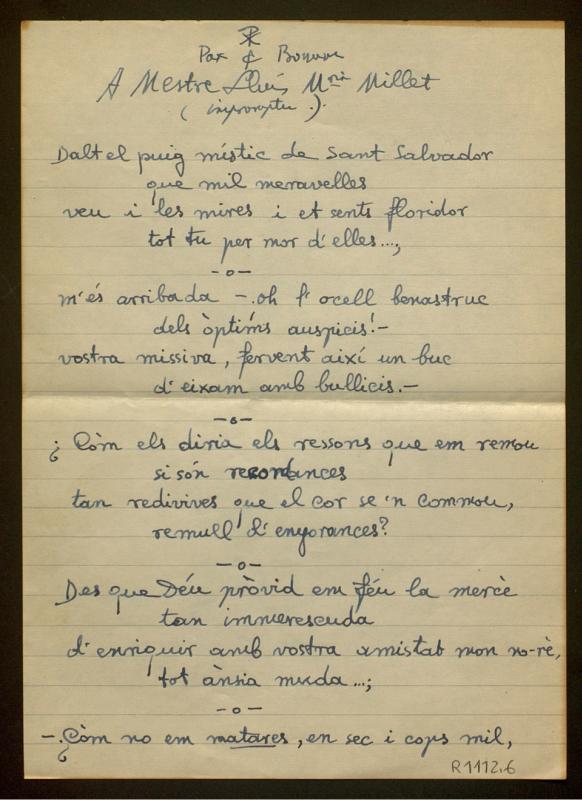 Pax ☧ Bonum
A Mestre Lluís Mª Millet
(impromptu).
Dalt el puig místic de Sant Salvador
que mil meravelles
veu i les mires i et sents floridor
tot tu per mor d'elles...,
-o-
m'és arribada -oh l'ocell benastruc
dels òptims auspicis!-
vostra missiva, fervent així un buc
d'eixam amb bullicis.-
-o-
¿Còm els diria els ressons que em remou
si són recordances
tan redivives que el cor se'n commou,
remull d'enyorances?
-o-
Des que Déu pròvid em féu la mercè
tan immerescuda
d'enriquir amb vostra amistat mon no-rè,
tot ànsia muda...;
-o-
-¿Còm no em matares, en sec i cops mil,
R1112.6